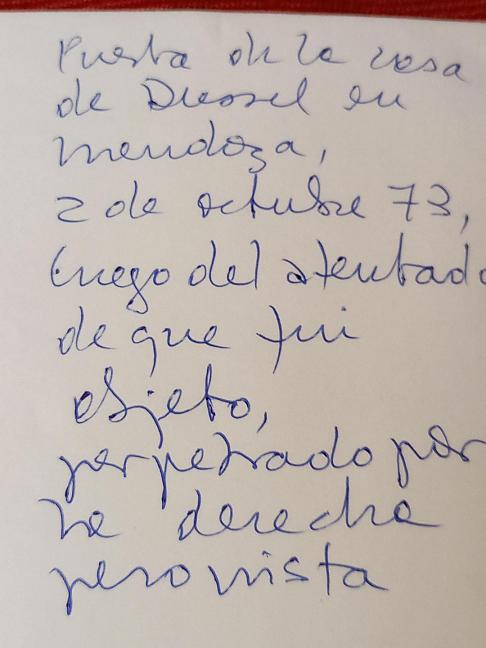 Puerta de la casa
de Dussel en
Mendoza,
2 de octubre 73,
luego del atentado
de que fui
objeto,
perpetrado por
la derecha
peronista